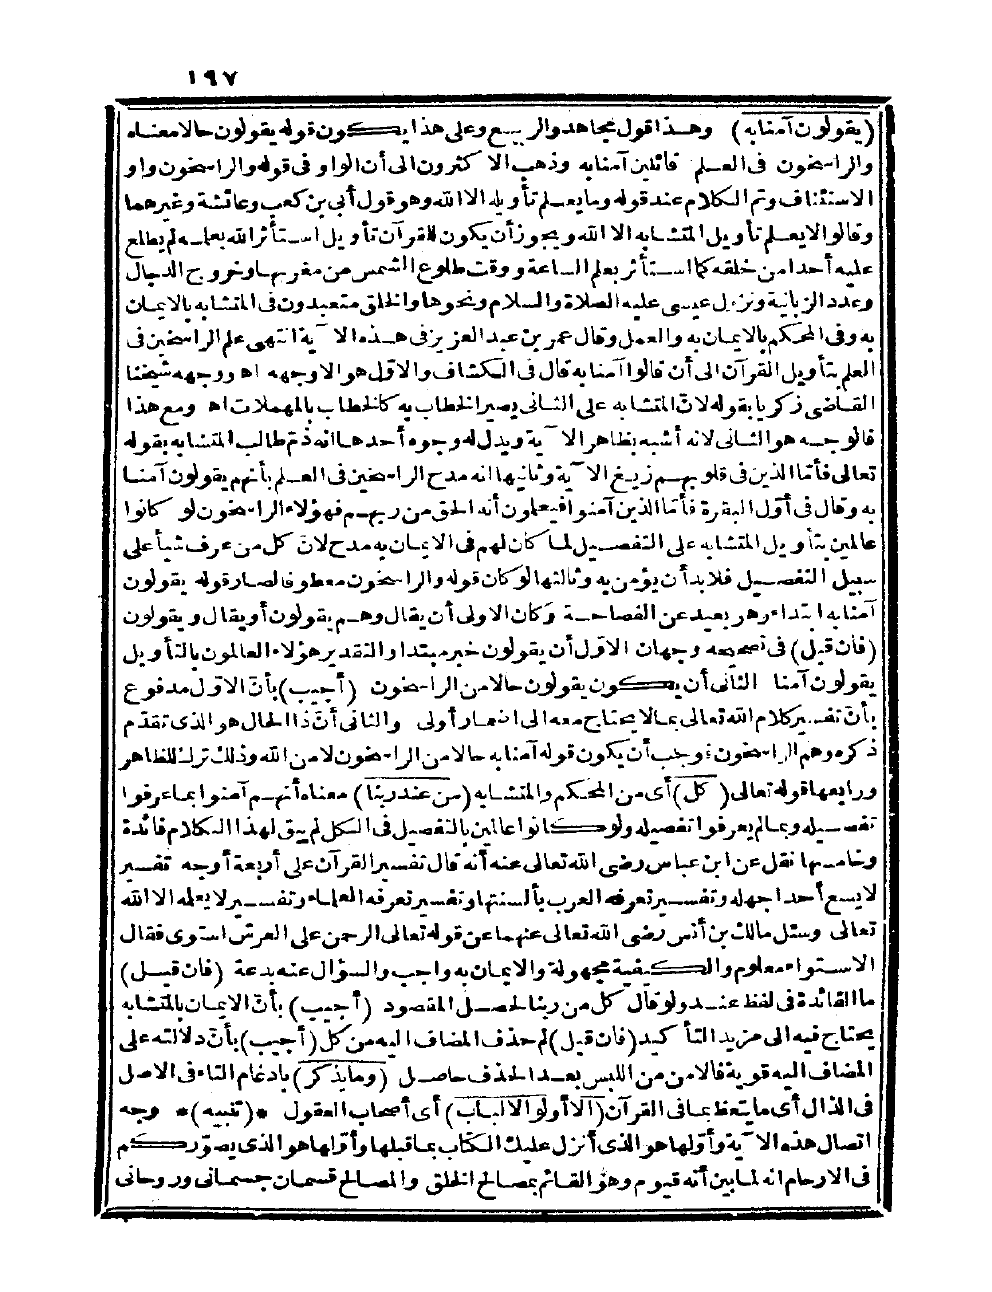 ١٩٧
(يقولون آمنا به) وهذا قول مجاهد والربيع وعلى هذا يكون قوله يقولون حالا معناه
والراسخون فى العلم قائلين آمنا به وذهب الا كثرون الى أن الواو فى قوله والراسخون واو
الاستئناف وتم الكلام عند قوله وما يعلم تأويله الا الله وهو قول أبى بن كعب وعائشة وغيرهما
وقالوا لا يعلم تأويل المتشابه الا الله ويجوز أن يكون للقرآن تأويل استأثر الله بعلمه لم يطلع
عليه أحدا من خلقه كما استأثر بعلم الساعة ووقت طلوع الشمس من مغربها وخروج الدجال
وعدد الزبانية ونزول عيسى عليه الصلاة والسلام ونحوها والخلق متعبدون فى المتشابه بالايمان
به وفى المحكم بالايمان به والعمل وقال عمر بن عبد العزيز فى هذه الا آية انتهى علم الراسخين فى
العلم بتأويل القرآن الى أن قالوا آمنا به قال فى الكشاف والاوّل هو الاوجه اه ووجهه شيخنا
القاضى زكريا بقوله لانّ المتشابه على الثانى يصير الخطاب به كالخطاب بالمهملات اه ومع هذا
فالوجه هو الثانى لانه أشبه بظاهر الا آية ويدل له وجوه أحدها انه ذمّ طالب المتشابه بقوله
تعالى فأمّا الذين فى قلوبهم زيغ الا آية وثانيها انه مدح الراسخين فى العلم بأنهم يقولون آمنا
به وقال فى أوّل البقرة فأمّا الذين آمنوا فيعلمون أنه الحق من ربهم فهؤلاء الراسخون لو كانوا
عالمين بتأويل المتشابه على التفصيل لما كان لهم فى الايمان به مدح لانّ كل من عرف شيأ على
سبيل التفصيل فلا بد أن يؤمن به وثالثها لو كان قوله والراسخون معطوفا لصار قوله يقولون
آمنا به ابتداء وهو بعيد عن الفصاحة وكان الاولى أن يقال وهم يقولون أو يقال ويقولون
(فان قيل) فى تصحيحه وجهان الاوّل أن يقولون خبر مبتدا والتقدير هؤلاء العالمون بالتأويل
يقولون آمنا الثانى أن يكون يقولون حالا من الراسخون (أجيب) بأنّ الاوّل مدفوع
بأنّ تفسير كلام الله تعالى بما لا يحتاج معه الى اضمار أولى والثانى أنّ ذا الحال هو الذى تقدّم
ذكره وهم الراسخون فوجب أن يكون قوله آمنا به حالا من الراسخون لا من الله وذلك ترك للظاهر
ورابعها قوله تعالى (كل) أى من المحكم والمتشابه (من عند ربنا) معناه أنهم آمنوا بما عرفوا
تفصيله وبما لم يعرفوا تفصيله ولو كانوا عالمين بالتفصيل فى الكل لم يبق لهذا الكلام فائدة
وخامسها نقل عن ابن عباس رضى الله تعالى عنه أنه قال تفسير القرآن على أربعة أوجه تفسير
لا يسع أحدا جهله وتفسير تعرفه العرب بألسنتها وتفسير تعرفه العلماء وتفسير لا يعلمه الا الله
تعالى وسئل مالك بن أنس رضى الله تعالى عنهما عن قوله تعالى الرحمن على العرش استوى فقال
الاستواء معلوم والكيفية مجهولة والايمان به واجب والسؤال عنه بدعة (فان قيل)
ما الفائدة فى لفظ عند ولو قال كل من ربنا لحصل المقصود (أجيب) بأنّ الايمان بالمتشابه
يحتاج فيه الى مزيد التأكيد (فان قيل) لم حذف المضاف اليه من كل (أجيب) بأنّ دلالته على
المضاف اليه قوية فالامن من اللبس بعد الحذف حاصل (وما يذكر) بادغام التاء فى الاصل
فى الذال أى ما يتعظ بما فى القرآن (الا أولوالالباب) أى أصحاب العقول *(تنبيه)* وجه
اتصال هذه الا آية وأولها هو الذى أنزل عليك الكتاب بما قبلها وأوّلها هو الذى يصوّركم
فى الارحام انه لما بين أنه قيوم وهو القائم بمصالح الخلق والمصالح قسمان جسمانى وروحانى